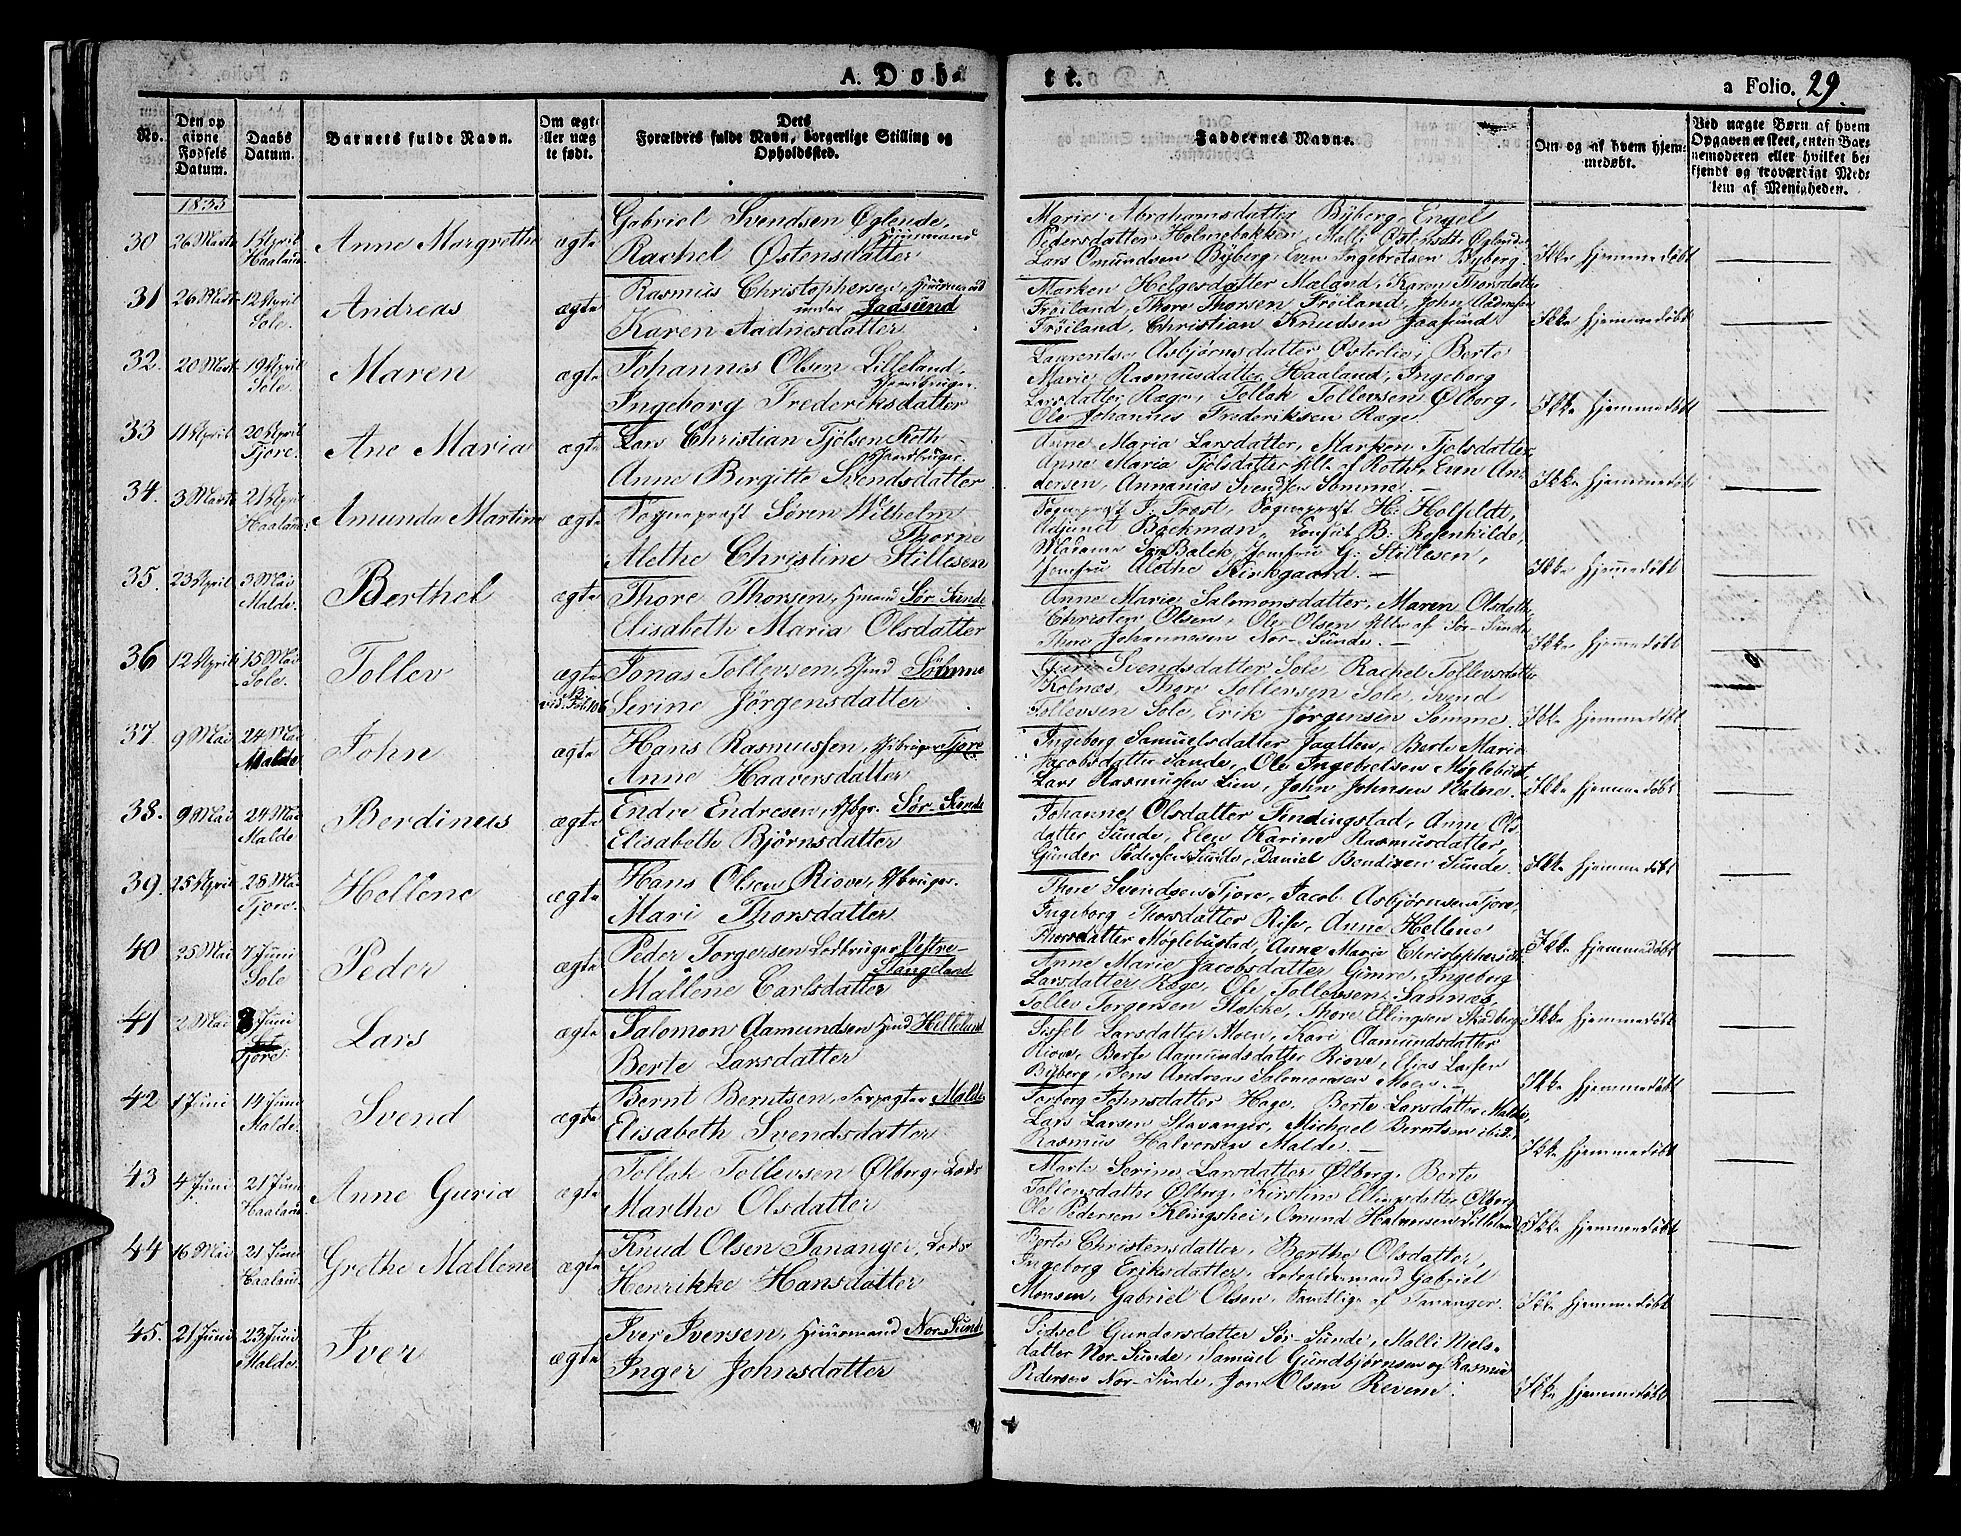 A. Døb-
te.
a Folio. 29.
No.
Den op
givne
Fødsels
Datum.
Daabs
Datum.
Barnets fulde Navn.
Om ægt-
eller uæg
te født.
Dets
Forældres fulde Navn, borgerlige Stilling og
Opholdssted.
Faddernes Navne.
Om og af hvem hjem-
medøbt.
Ved uægte Børn af hvem
Opgaven er skeet, enten Bar-
nemoderen eller hvilket be-
kjendt og troværdigt Med-
lem af Menigheden.
1833
30 26 Marts 1 April Haaland Anne Margrethe ægte
Gabriel Svendsen Øglende, Huusmand
Rachel Østensdatter
Marie Abrahamsdatter Byberg, Engel
Pedersdatter Holmebakken, Malli Østensdtr Øglende
Lars Omundsen Byberg, Even Ingebretsen Byberg.
Ikke hjemmedøbt
31 26 Marts 12 April Sole. Andreas ægte
Rasmus Christophersen, Huusmand
under Jaasund
Karen Aadnesdatter
Marken Helgesdatter Meland, Karen Thorsdatter
Frøiland, Thore Thorsen Frøiland, John Aadnesen
Frøiland, Christian Knudsen Jaasund
Ikke hjemmedøbt
32. 20 Marts 19 April Sole. Maren ægte
Johannes Olsen Lilleland,
Ingeborg Frederiksdatter
Laurentse Asbjørnsdatter Østerlie, Berte
Marie Rasmusdatter Haaland, Ingeborg
Larsdatter Ræge, Tollak Tollevsen Ølberg,
Ole Johannes Frederiksen Ræge.
Ikke hjemmedøbt
33 11 April 20 April Tjore. Ane Maria ægte
Lars Christian Tjølsen Roth
Gaardbruger.
Anne Birgitte Svendsdatter
Anne Maria Larsdatter, Marken Tjolsdatter,
Anne Maria Tjolsdatter Alle af Roth, Even An-
dersen, Annanias Svendsen Sømme.
Ikke hjemmedøbt
34. 3 Marts 21 April Haaland. Amunda Martine ægte
Sognepræst Søren Wilhelm
Thorne
Alethe Christine Stillesen
Sognepræst P. Trest, Sognepræst H. Holfeldt,
Adjunct Backman, Consul B. Rosenkilde,
Madame Balck, Jomfru G. Stillesen,
Jomfru Alethe Kirkgaard.
Ikke hjemmedøbt
35. 23 April 3 Mai Malde. Berthel ægte
Thore Thorsen, Hmand Sør-Sunde
Elisabeth Maria Olsdatter
Anne Marie Salomonsdatter, Maren Olsdatter
Christen Olsen, Ole Olsen Alle af Sør-Sunde
Thore Johannesen Nor-Sunde.
Ikke hjemmedøbt
36 12 April 15 Mai Sole. Tollev ægte
Jonas Tollevsen, Hmd Sømme
Serine Jørgensdatter
Svendsdatter Sole, Rachel Tollevsdatter
Kolnæs, Thore Tollevsen Sole, Svend
Tollevsen Sole, Erik Jørgensen Sømme.
Ikke hjemmedøbt
37 9 Mai 24 Mai Malde John ægte
Hans Rasmussen, Tjore
Anne Haaversdatter
Ingeborg Samuelsdatter Jaatten, Berte Marie
Jacobsdatter Sande, Ole Ingebretsen Møglebust
Lars Rasmussen Lim, John Johnsen Malde.
Ikke hjemmedøbt
38. 9 Mai 24 Mai Malde Berdinus ægte
Endre Endresen, Gbgr. Sør-Sunde
Elisabeth Bjørnsdatter
Johanne Olsdatter Findingstad, Anne Ols-
datter Sunde, Elen Karine Rasmusdatter,
Gunder Pedersen Sunde, Daniel Bendixen Sunde.
Ikke hjemmedøbt
39. 25 April 28 Mai Tjore. Hellene ægte
Hans Olsen Riove, Gbruger.
Mari Thorsdatter
Thore Svendsen Tjore, Jacob Asbjørnsen Tjore,
Ingeborg Thorsdatter Risse, Anne Hellene
Thorsdatter Møglebustad, Anne Marie Christophersdtr
Ikke hjemmedøbt
40 25 Mai 7 Juni Sole Peder ægte
Peder Torgersen Lodbruger Vestre-
Stangeland
Mallene Carlsdatter
Anne Marie Jacobsdatter Gimre, Ingeborg
Larsdatter Ræge, Ole Tollevsen Sannæs,
Tollev Torgersen Stokke, Thore Ellingsen Stadberg.
Ikke hjemmedøbt
41 2 Mai Juni Tjore. Lars ægte
Salomon Aamundsen Hmd Helleland
Berte Larsdatter
Sissel Larsdatter Moen, Kari Aamundsdatter
Riove, Berte Aamundsdatter Riove, Elias Larsen
Byberg, Jens Andreas Salomonsen Moen.
Ikke hjemmedøbt
42 1 Juni 14 Juni Malde. Svend ægte
Bernt Berntsen, Forpagter Malde
Elisabeth Svendsdatter
Torborg Johnsdatter Hage, Berte Larsdatter Malde,
Lars Larsen Stavanger, Michael Berntsen ibid.,
Rasmus Halvorsen Malde.
Ikke hjemmedøbt
43 4 Juni 21 Juni Haaland. Anne Guria ægte
Tollak Tollevsen Ølberg, Lods
Marthe Olsdatter
Marte Serine Larsdatter Ølberg, Berte
Tollevsdatter Ølberg, Kirstine Ellingsdatter Ølberg
Ole Pedersen Klingshei, Omund Halvorsen Lilleland
Ikke hjemmedøbt
44 16 Mai 21 Juni Haaland. Grethe Mallene ægte
Knud Olsen Tananger, Lods
Henrikke Hansdatter
Berte Christensdatter, Berthe Olsdatter,
Ingeborg Eriksdatter, Lodsoldermand Gabriel
Monsen, Gabriel Olsen, Samtlige af Tananger.
Ikke hjemmedøbt
45. 21 Juni 23 Juni Malde. Iver ægte
Iver Iversen, Huusmand Nor-Sunde
Inger Johnsdatter
Sidsel Gundersdatter Sør-Sunde, Malli Niels-
datter Nor-Sunde, Samuel Gundbjørnsen og Rasmus
Pedersen Nor-Sunde, Jone Olsen Revem.
Ikke hjemmedøbt